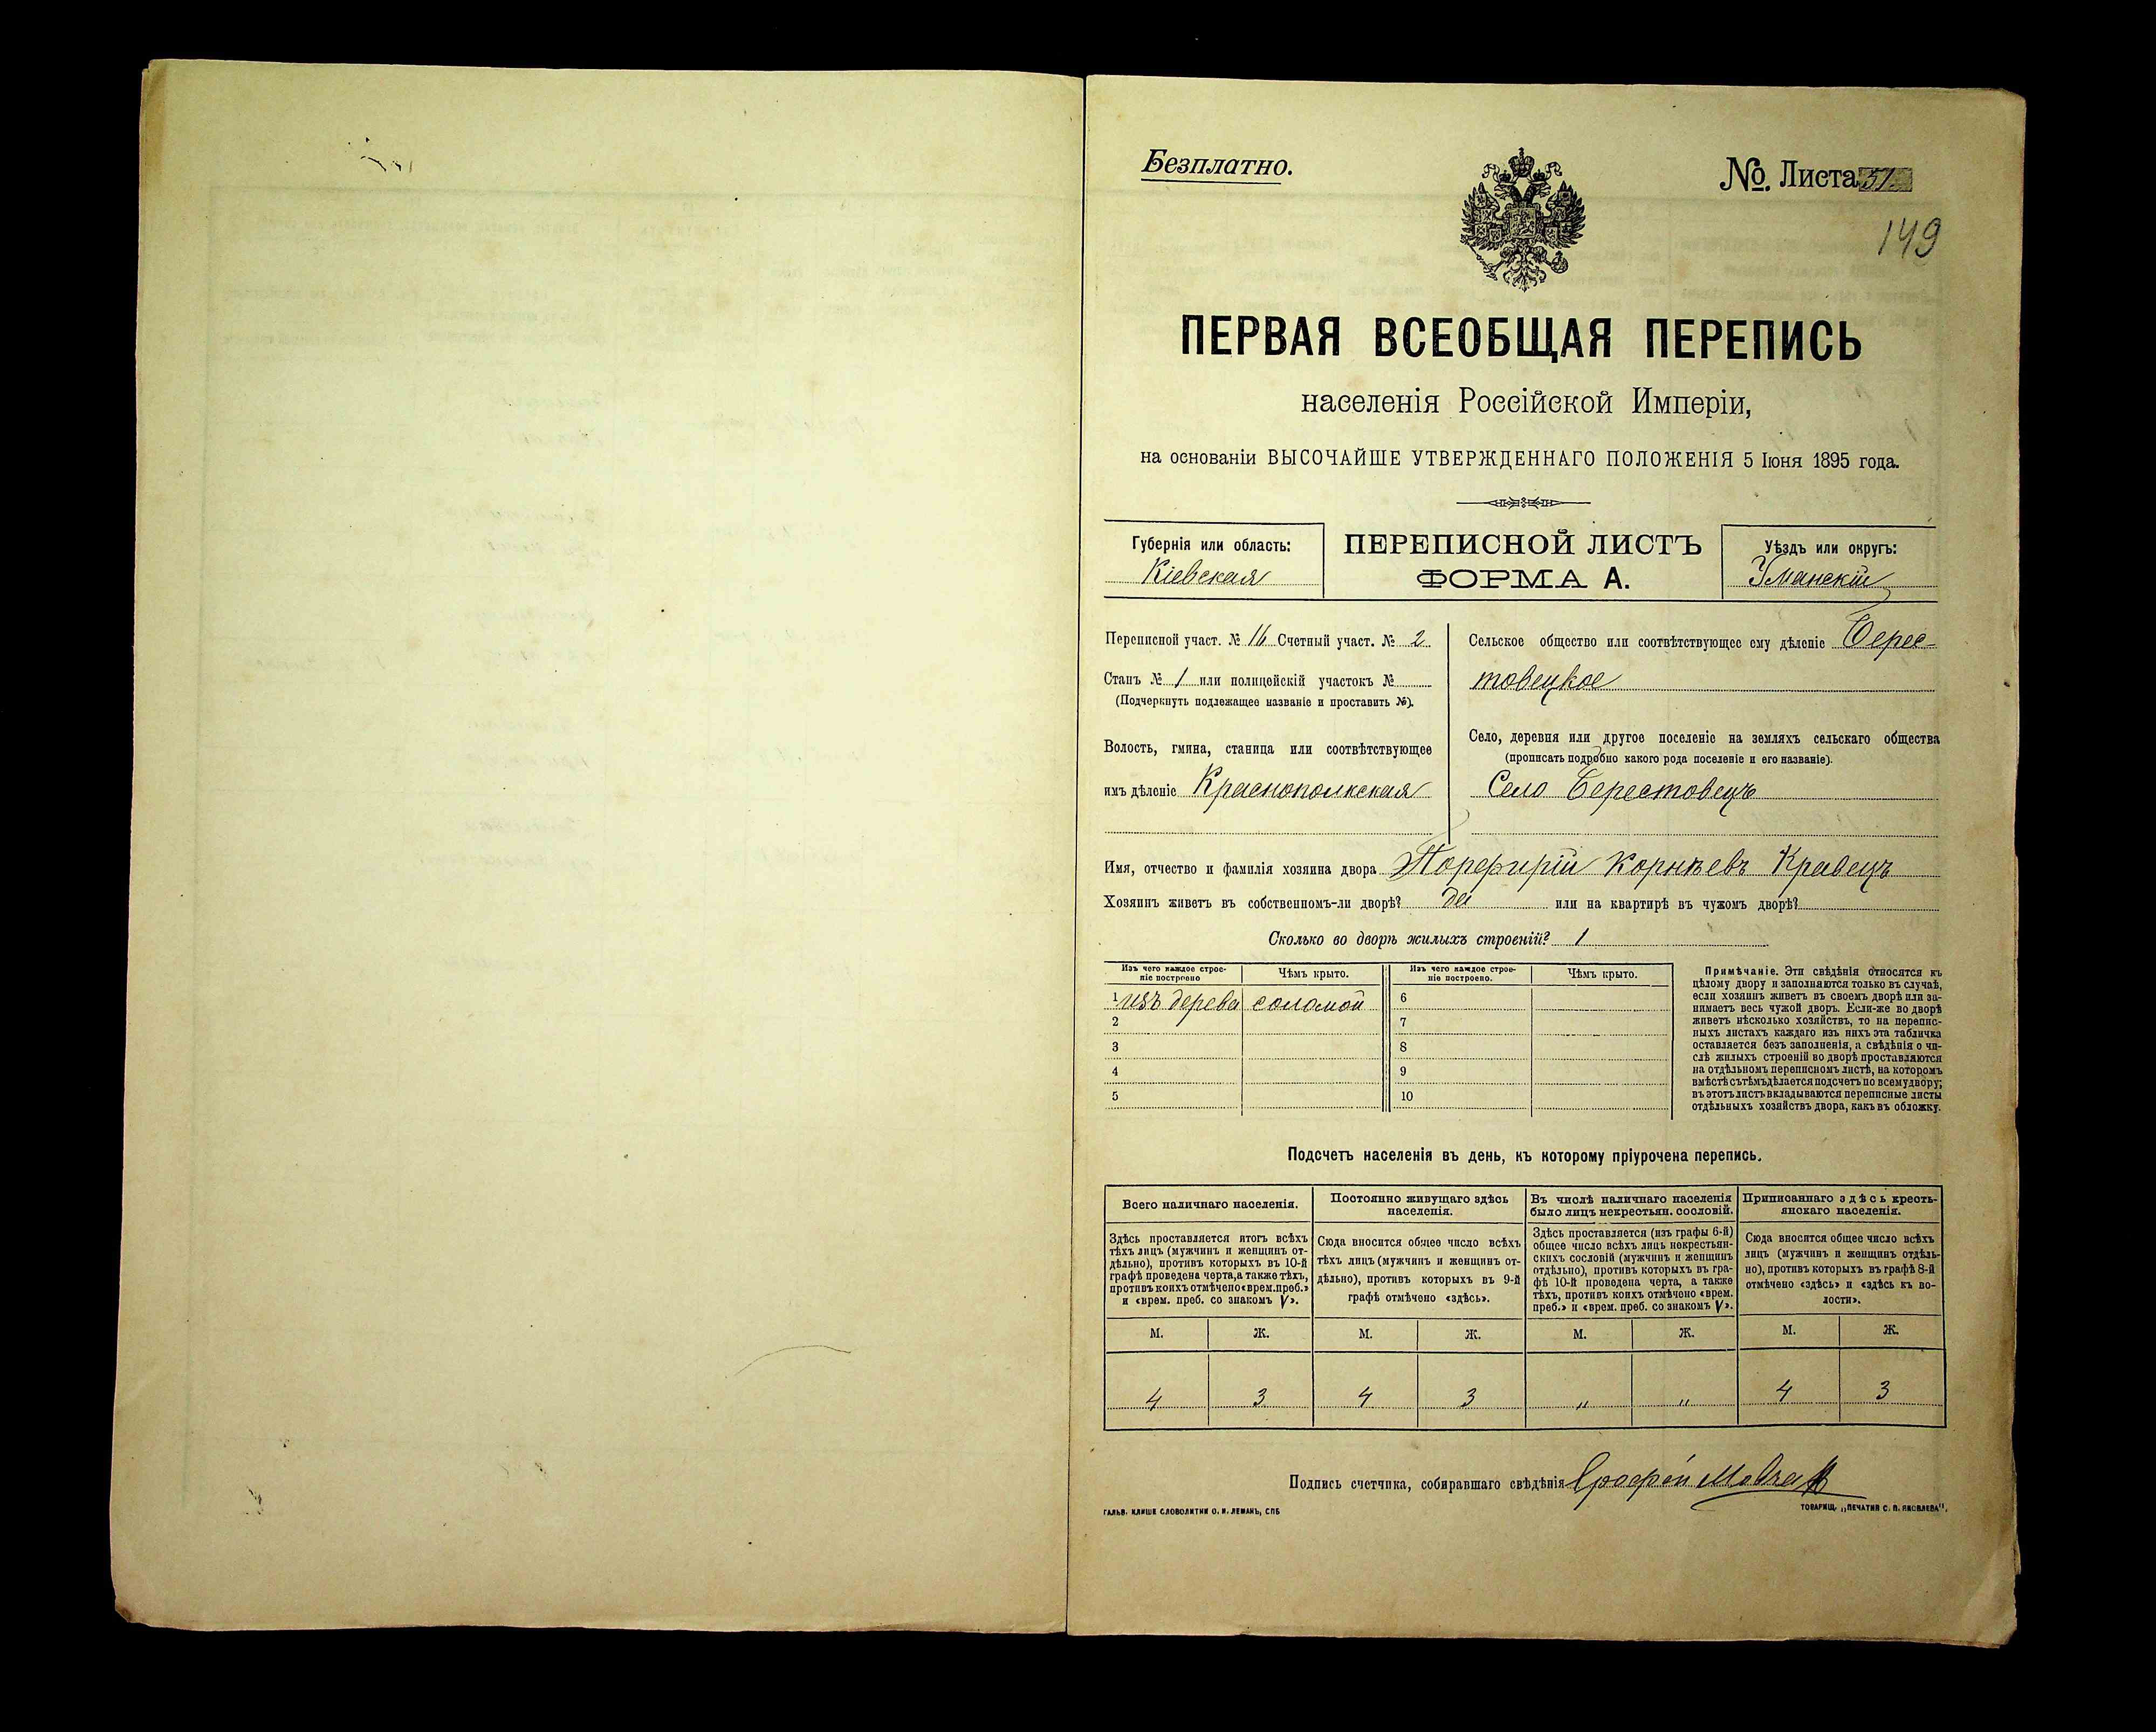 Безплатно.
№. Листа 51
149
ПЕРВАЯ ВСЕОБЩАЯ ПЕРЕПИСЬ
населенія Россійской Имперіи,
на основаніи ВЫСОЧАЙШЕ УТВЕРЖДЕННАГО ПОЛОЖЕНІЯ 5 Іюня 1895 года.
Губернія или область:
Кіевская
ПЕРЕПИСНОЙ ЛИСТЪ
ФОРМА А.
Уѣздъ или округъ:
Уманскій
Переписной участ. № 16 Счетный участ. № 2
Станъ № 1 или полицейскій участокъ №
(Подчеркнуть подлежащее названіе и проставить №).
Волость, гмина, станица или соотвѣтствующее
имъ дѣленіе Краснополкская
Сельское общество или соотвѣтствующее ему дѣленіе Берес-
товецкое
Село, деревня или другое поселеніе на земляхъ сельскаго общества
(прописать подробно какого рода поселеніе и его названіе).
Село Берестовецъ
Имя, отчество и фамилія хозяина двора Порфирій Корнѣевъ Кравецъ
Хозяинъ живетъ въ собственномъ-ли дворѣ? да или на квартирѣ въ чужомъ дворѣ?
Сколько во дворѣ жилыхъ строеній? 1
Изъ чего каждое строе-
ніе построено
Чѣмъ крыто.
Изъ чего каждое строе-
ніе построено.
Чѣмъ крыто.
1 изъ дерева соломой
2
3
4
5
6
7
8
9
10
Примѣчаніе. Эти свѣдѣнія относятся къ
цѣлому двору и заполняются только въ случаѣ,
если хозяинъ живетъ въ своемъ дворѣ или за-
нимаетъ весь чужой дворъ. Если-же во дворѣ
живетъ нѣсколько хозяйствъ, то на перепис-
ныхъ листахъ каждаго изъ нихъ эта табличка
оставляется безъ заполненія, а свѣдѣнія о чи-
слѣ жилыхъ строеній во дворѣ проставляются
на отдѣльномъ переписномъ листѣ, на которомъ
вмѣстѣ съ тѣмъ дѣлается подсчетъ по всему двору;
въ этотъ листъ вкладываются переписные листы
отдѣльныхъ хозяйствъ двора, какъ въ обложку.
Подсчетъ населенія въ день, къ которому пріурочена перепись.
Всего наличнаго населенія.
Здѣсь проставляется итогъ всѣхъ
тѣхъ лицъ (мужчинъ и женщинъ от-
дѣльно), противъ которыхъ въ 10-й
графѣ проведена черта, а также тѣхъ,
противъ коихъ отмѣчено «врем. преб.»
и «врем. преб. со знакомъ V».
Постоянно живущаго здѣсь
населенія.
Сюда вносится общее число всѣхъ
тѣхъ лицъ (мужчинъ и женщинъ от-
дѣльно), противъ которыхъ въ 9-й
графѣ отмѣчено «здѣсь».
Въ числѣ наличнаго населенія
было лицъ некрестьян. сословій.
Здѣсь проставляется (изъ графы 6-й)
общее число всѣхъ лицъ некрестьян-
скихъ сословій (мужчинъ и женщинъ
отдѣльно), противъ которыхъ въ гра-
фѣ 10-й проведена черта, а также
тѣхъ, противъ коихъ отмѣчено «врем.
преб.» и «врем. преб. со знакомъ V».
Приписаннаго здѣсь кресть-
янскаго населенія.
Сюда вносится общее число всѣхъ
лицъ (мужчинъ и женщинъ отдѣль-
но), противъ которыхъ въ графѣ 8-й
отмѣчено «здѣсь» и «здѣсь къ во-
лости».
М. Ж. М. Ж. М. Ж. М. Ж.
4 3 4 3 „ „ 4 3
Подпись счетчика, собиравшаго свѣдѣнія
ГАЛЬВ. КЛИШЕ СЛОВОЛИТНИ О. И. ЛЕМАНЪ, СПБ
ТОВАРИЩ. „ПЕЧАТНЯ С. П. ЯКОВЛЕВА".